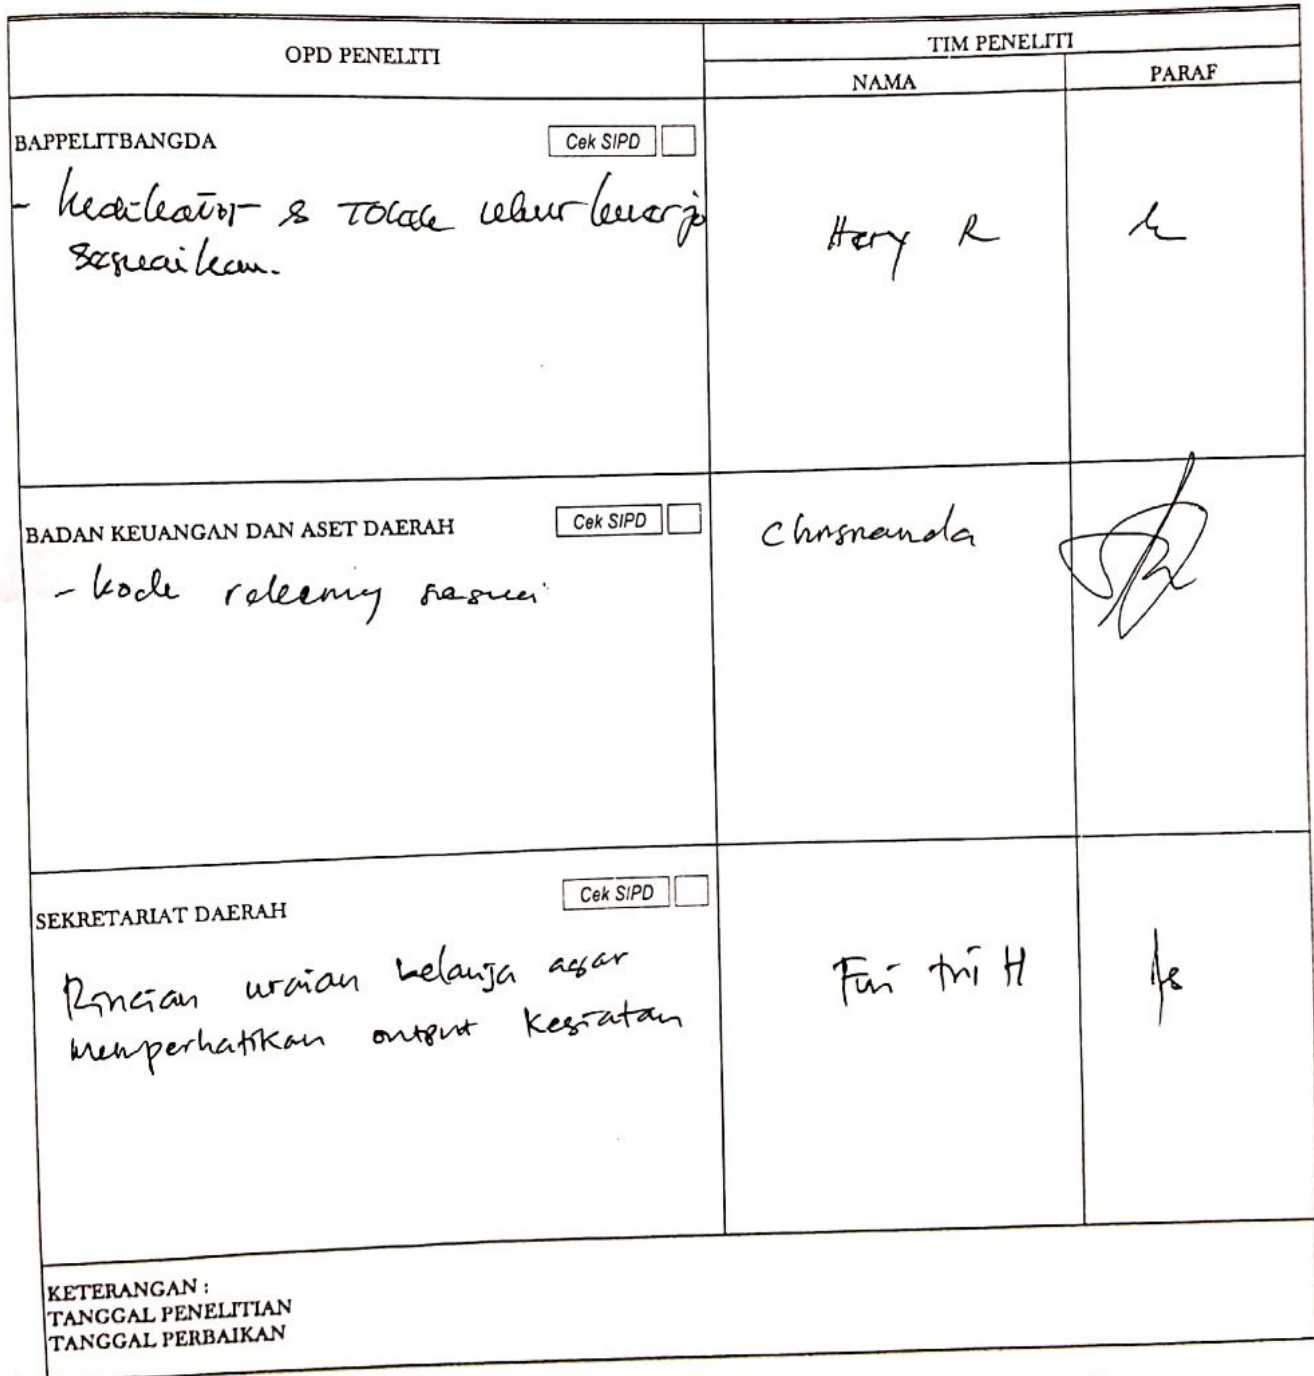 OPD PENELITI
TIM PENELITI
NAMA
PARAF
BAPPELITBANGDA
Cek SIPD
- Indikator & Tolok ukur kinerja
sesuaikan.
Hery R
BADAN KEUANGAN DAN ASET DAERAH
Cek SIPD
- kode rekening sesuai
Chrisnanda
SEKRETARIAT DAERAH
Cek SIPD
Rincian uraian belanja agar
memperhatikan output kegiatan
tri H
KETERANGAN :
TANGGAL PENELITIAN
TANGGAL PERBAIKAN